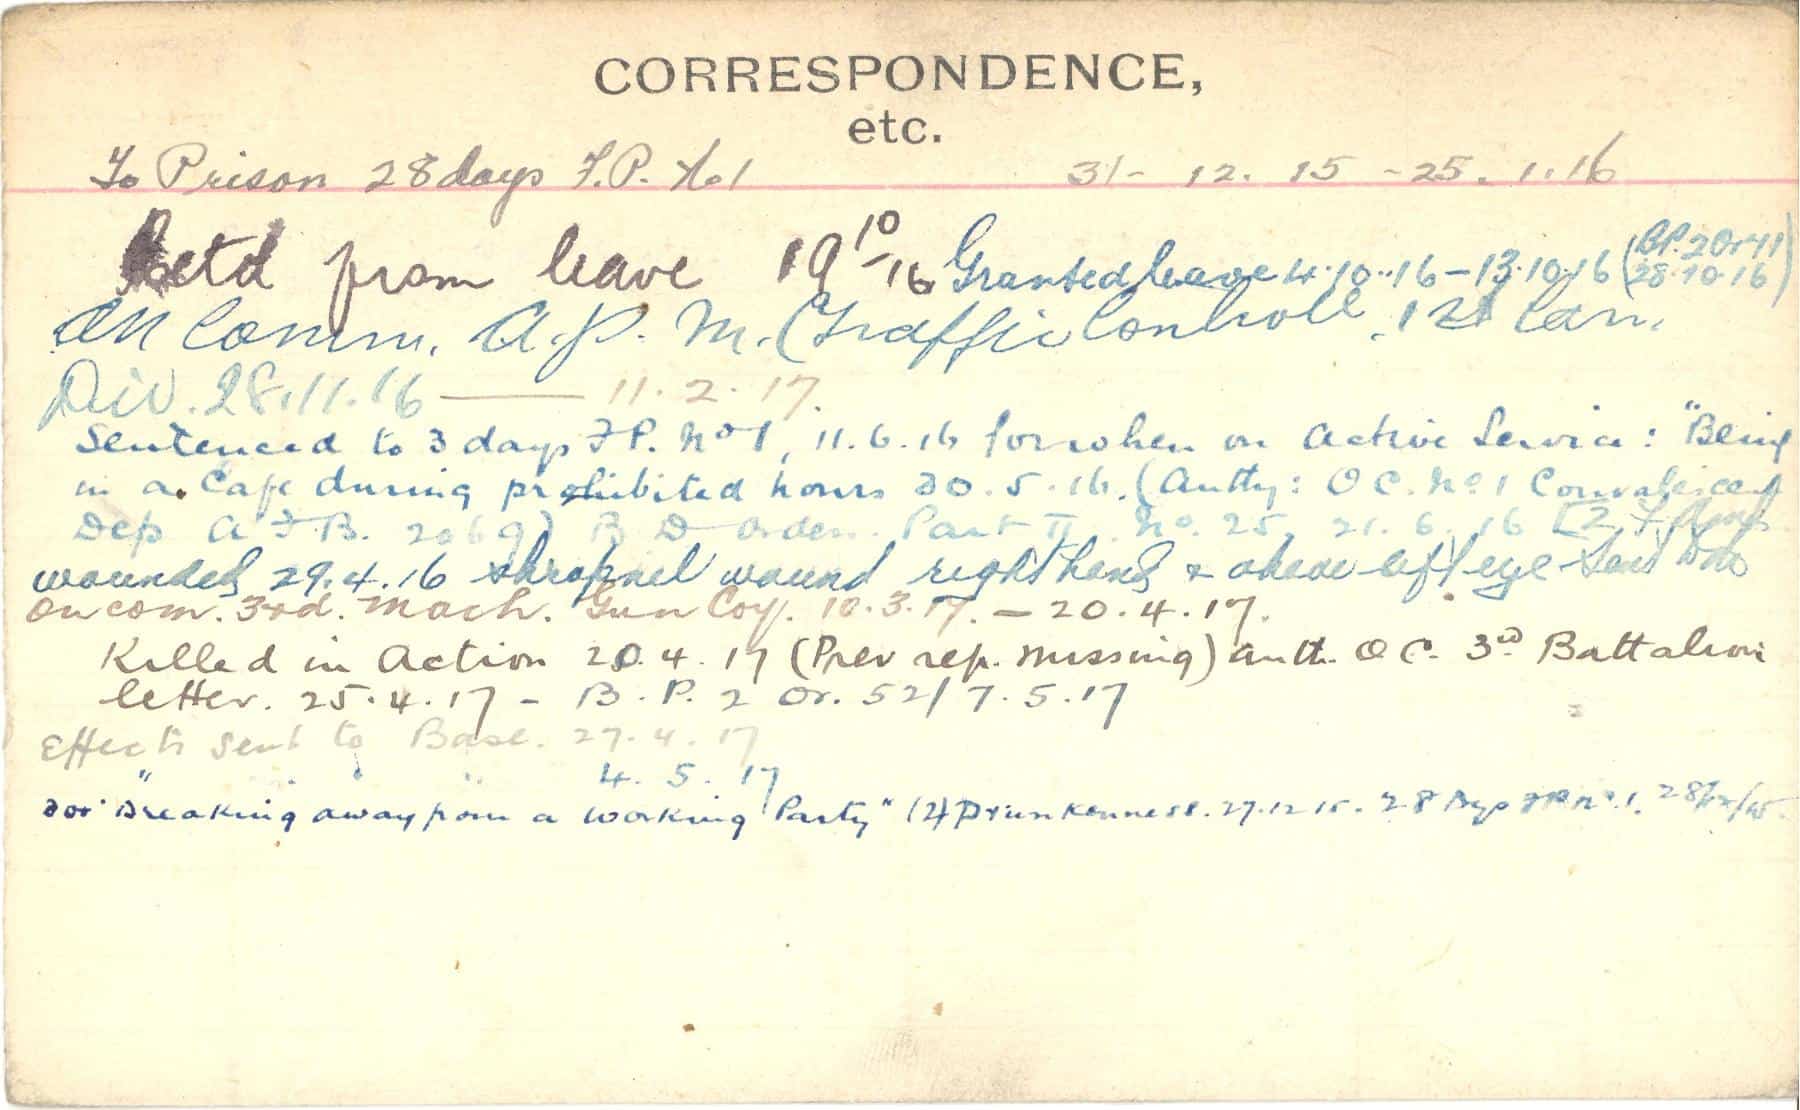 CORRESPONDENCE,
etc.
To Prison 28 days F.P. No 1 31- 12. 15 - 25. 1. 16
Retd from leave 19 10-16 Granted leave 4.10.16 - 13.10.16 (BP. 2 Or 41
28.10.16)
On Comm. A.P.M. (Traffic Controll. 1st Can.
Div. 28.11.16 —— 11.2.17.
Sentenced to 3 days F.P. No 1, 11.6.16 for when on Active Service: "Being
in a Cafe during prohibited hours 20.5.16. (Autty: OC. No 1 Convalescent
Dep A F B. 2069) B D Order Part II No. 25, 21. 6. 16
wounded 29.4.16 shrapnel wound right hand & above left eye
on com. 3rd. Mach. Gun Coy. 10.3.17. - 20.4.17.
Killed in Action 20.4.17 (Prev rep. missing) auth. OC. 3rd Battalion
letter. 25.4.17 - B.P. 2 Or. 52/ 7.5.17
Effects sent to Base. 27.4.17
" " " " 4. 5. 17
for "Breaking away from a working Party" (2) Drunkenness. 27.12.15. 28 Days FP No. 1. 28/12/15.